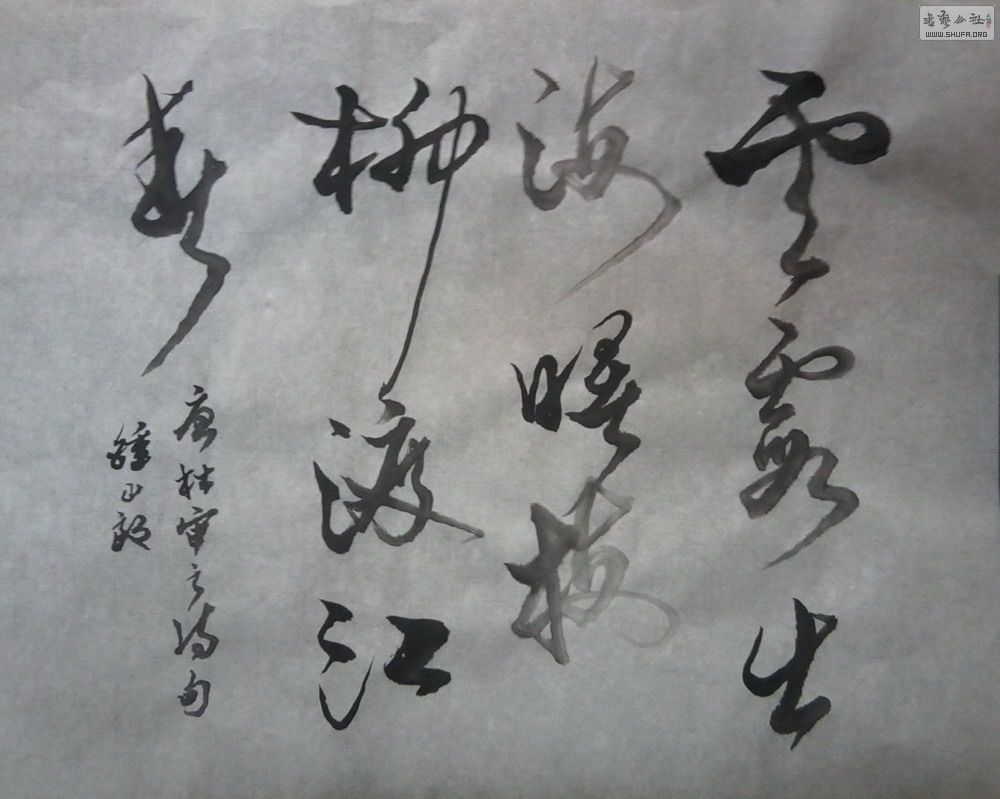 雲霞出
海曙梅
柳渡江
春
唐杜审言诗句
書藝公社
WWW.SHUFA.ORG